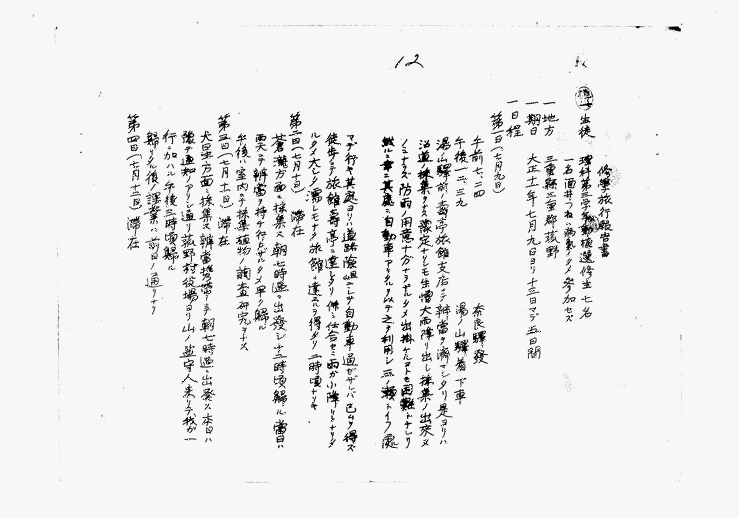 12
修學旅行報告書
生徒 理科第三學年動植選修生七名
一名酒井つねハ病氣ノタメ參加セズ
一地方 三重縣三重郡菰野
一期日 大正十一年七月九日ヨリ十三日マデ五日間
一日程
第一日(七月九日)
午前七、二四 奈良驛發
午後一、三九 湯ノ山驛着下車
湯山驛前壽亭旅館支店ニテ辨當ヲ濟マシタリ是ヨリハ
沿道採集ヲナス豫定ナリシモ生憎大雨降リ出シ採集ノ出來ヌ
ノミナラズ防雨ノ用意十分ナラザルタメ出掛ケルコトモ困難トナレリ
然ルニ幸ニ其處ニ自動車アリタルヲ以テ之ヲ利用シ三ノ瀬トイフ處
マデ行キ其處ヨリ道路險岨ニシテ自動車通ゼザレバ已ムヲ得ズ
徒歩シテ旅館壽亭ニ達シタリ併シ仕合セニ雨ガ小降リトナリタ
ルタメ大シタ濡レモナク旅館ニ達スルヲ得タリ二時頃ナリキ
第二日(七月十日) 滯在
蒼瀧方面ニ採集ス朝七時過ニ出發シ十二時頃歸ル當日ハ
雨天ニテ辨當ヲ持チ行カザルタメ早ク歸ル
午後ハ室内ニテ採集植物ノ調査研究ヲナス
第三日(七月十一日) 滯在
犬星方面ニ採集ス辨當携帶ニテ朝七時過ニ出発ス本日ハ
豫テ通知ノアリシ通リ菰野村役場ヨリ山ノ監守人来リテ我ガ一
行ニ加ハル午後三時頃歸ル
歸リタル後ノ課業ハ前日ノ通リナリ
第四日(七月十二日) 滯在